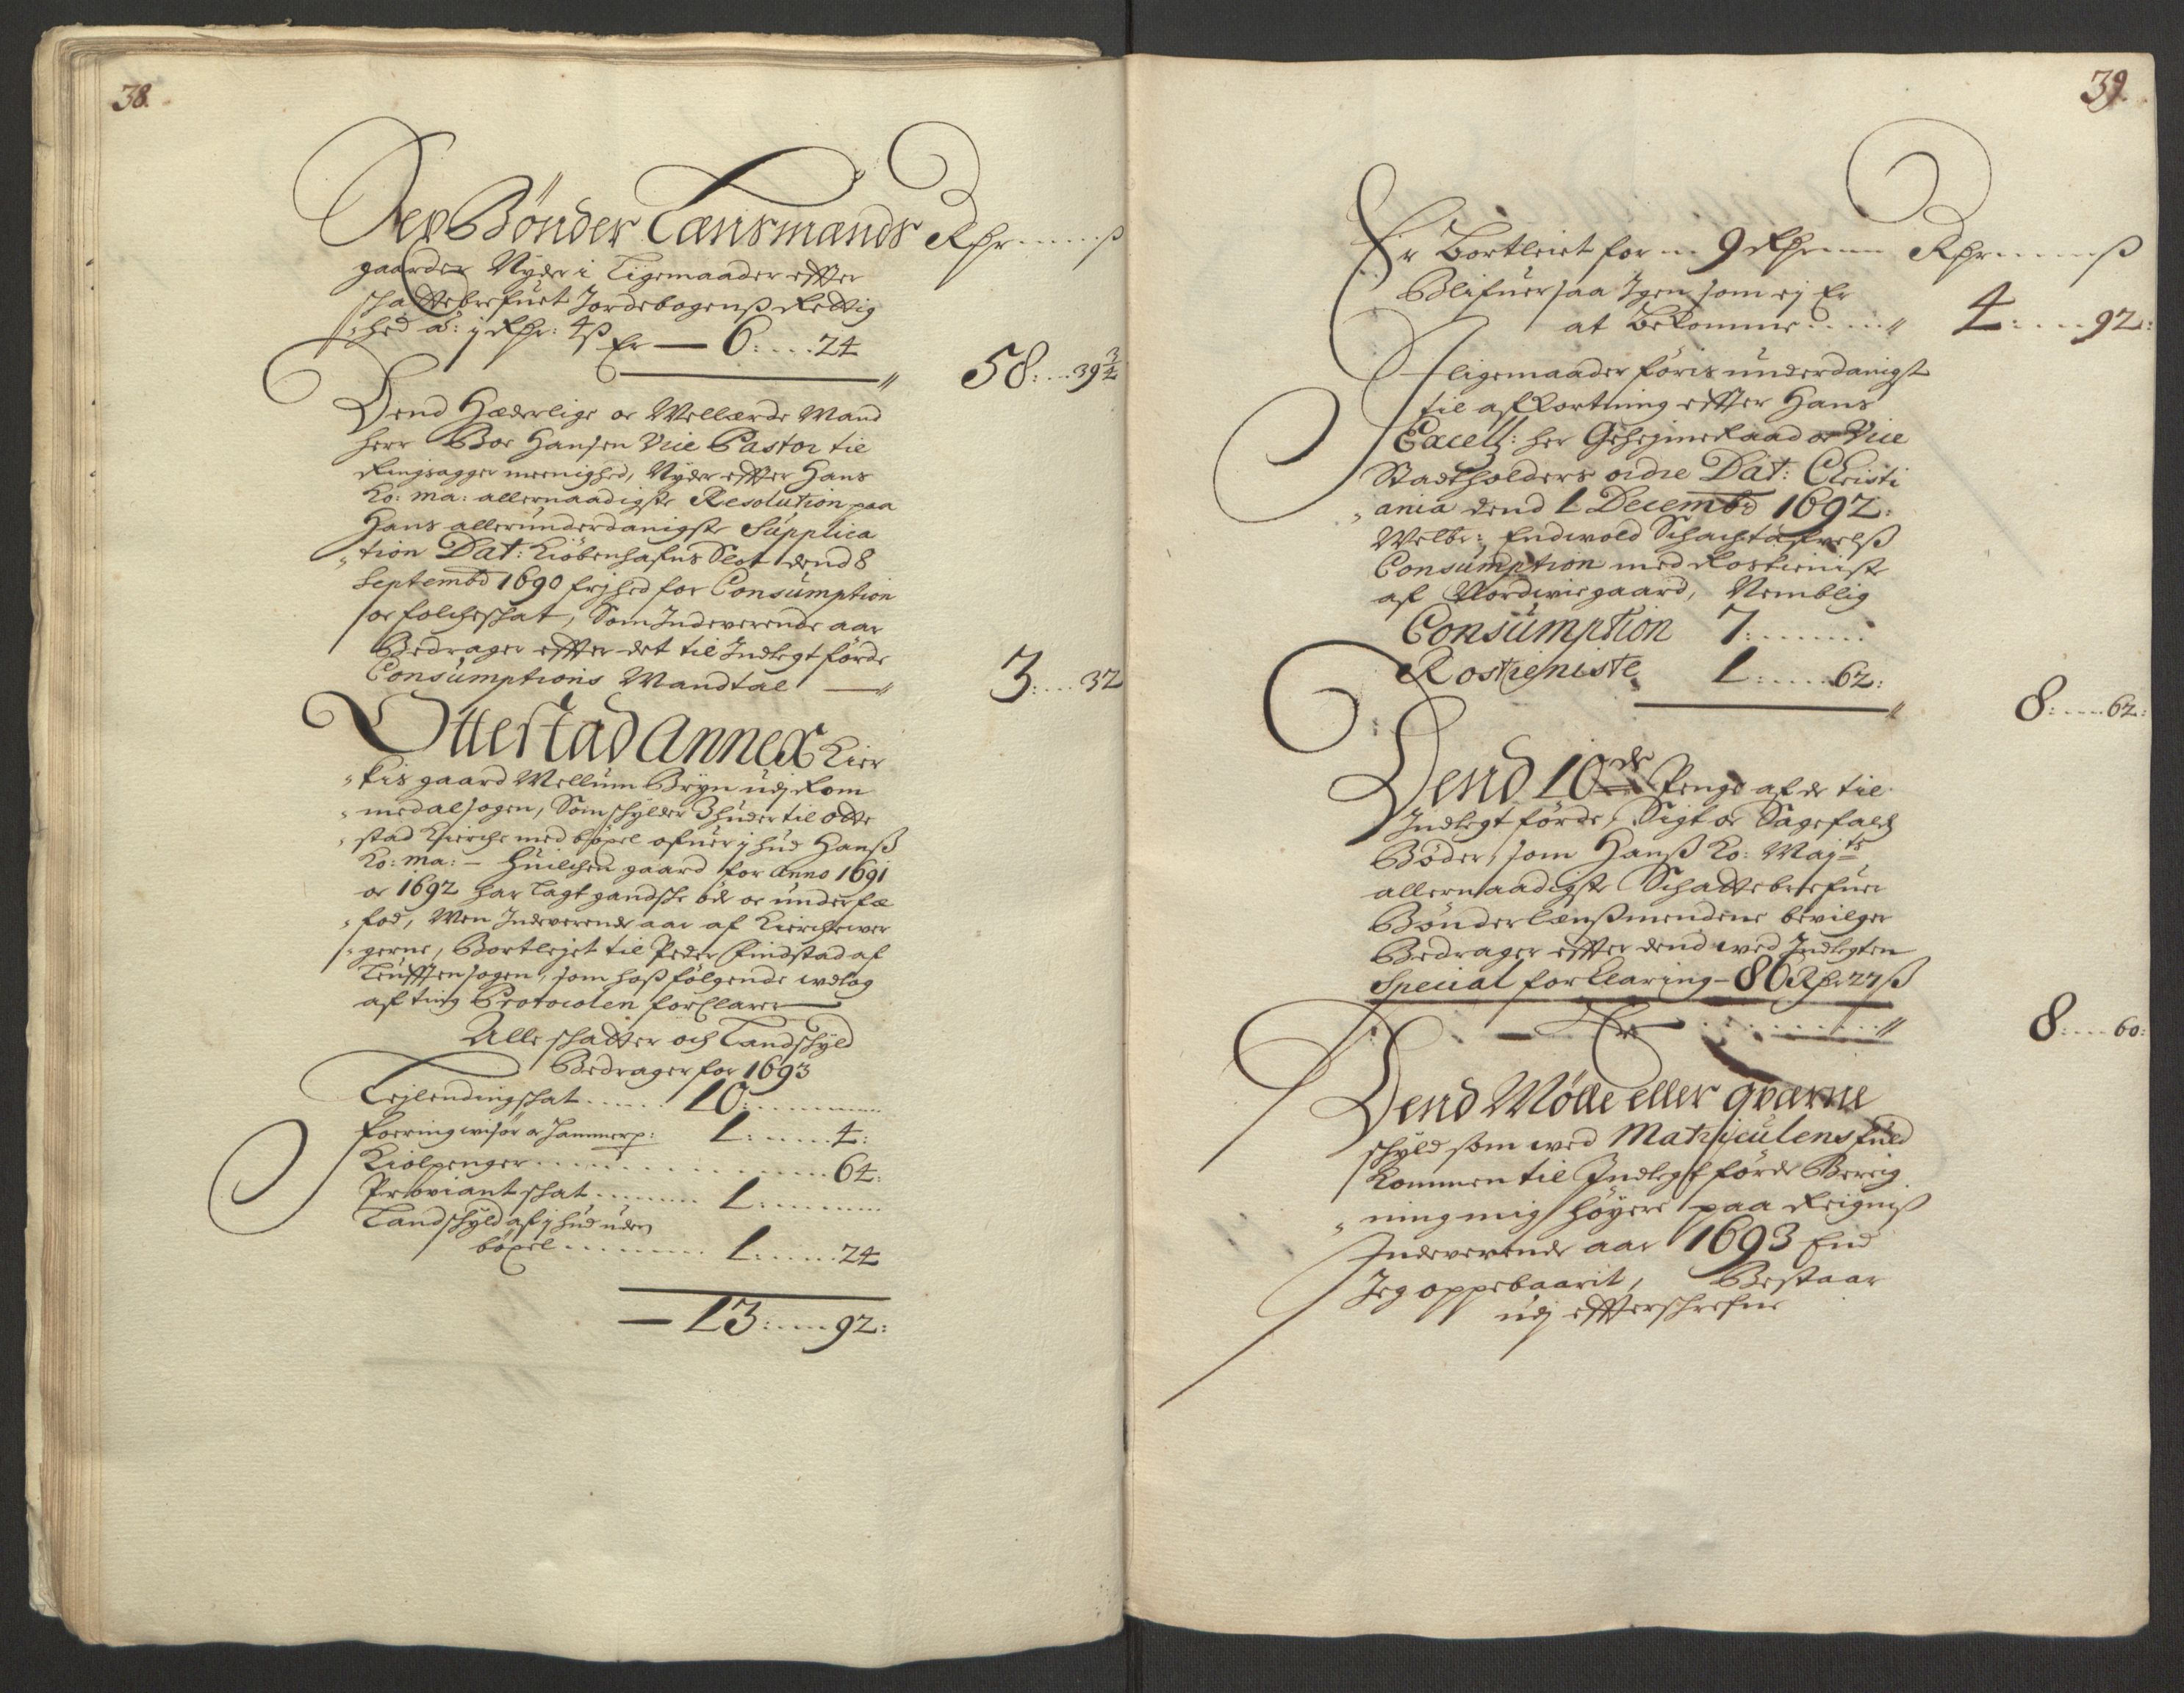 38.
Aen Bönder Lænsmænds Rdr ß
gaarder Nyder i Ligemaader effter
schattebrefuet Jordebogenß Rettig
hed a: j Rdr: 4ß Er — 6: 24
58: 39 3/4
Dend Hæderlige oc Wellærde Mand
Herr Boe Hansen Vice Pastor til
Ringsagger meenighed, Nyder effter Hans
Ko: Ma: allernaadigste Resolution paa
Hans allerunderdanigste Supplica
tion Dat: Kiöbenhafns Slot dend 8
Septembr 1690 frihed for Consumption
oc folcheschat, Som Indeverende aar
Bedrager effter det til Indlegt förde
Consumptions Mandtal — 3: 32
Ottestad Annex Kier
kis gaard Mellum Bryn udj Rom
medal sogen, Som schylder 3 huder til Otte
stad Kierche med böxel ofuer j hud Hanß
Ko: Ma: – Huilchen gaard for Anno 1691
oc 1692 har lagt gandsche öde oc under fæ
fod, Men Indeverende aar af Kierchewer
gerne, Bortlejet til Peder Findstad af
Leufften sogen, som hoß fölgende udtog
af ting Protocolen forClarer
Alle schatter och Landschyld
Bedrager for 1693
Lejlendingschat 10:
Foering wisör oc Jammerp: 1: 4:
Kiölpenger 64:
Proviantschat 1:
Landschyld af j hud uden
böxel 1: 24
— 13: 92:
39.
Er Bortleiet for 9 Rdr Rdr ß
Blifuer saa Igen som ej Er
at bekomme 4: 92:
I ligemaader föris underdanigst
til afKortning effter Hans
Excell: Her Geheimeraad oc Vice
Stadtholders ordre Dat: Christi
ania dend 1 Decembr 1692:
Welbr: Endwold Schachtafwelß
Consumption med Rostieniste
af Nordwiegaard, Nemblig
Consumption 7:
Rostieniste 1: 62:
8: 62:
Dend 10de Penge af de til
Indlegt förde, Sigt oc Sagefalds
Böder, som Hanß Ko: Majts
allernaadigste Schattebrefuer
Bönderlænßmendene bevilger
Bedrager effter dend wed Indlegten
Special forklaring – 86 Rdr 27ß
Er 8: 60:
Dend Mölle eller qværne
schyld som wed Matriculens fuld
kommen til Indlegt förde Bereig
ning mig höyere paa Reigniß
Indeverende aar 1693 End
Jeg oppebaarit, Bestaar
udj effterschrefne